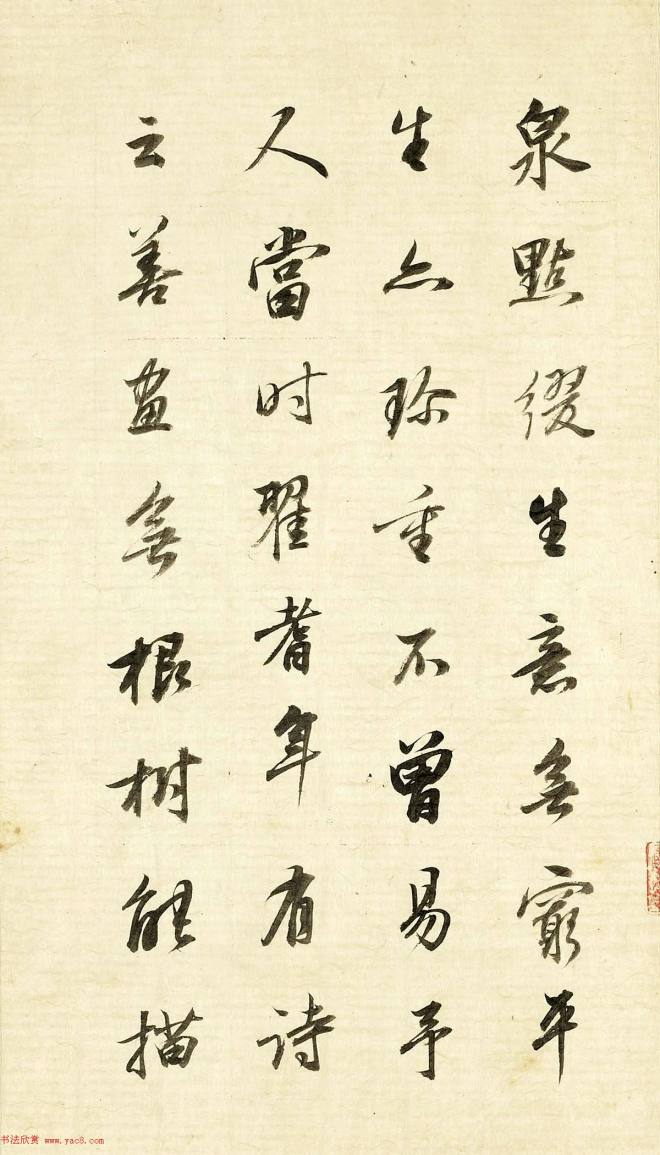 泉點綴生意無窮平
生亦珎重不曾易予
人當时瞿耆年有詩
云善畫無根樹能描
书法欣赏 www.yac8.com